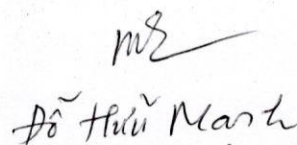 Đỗ Hữu Mạnh